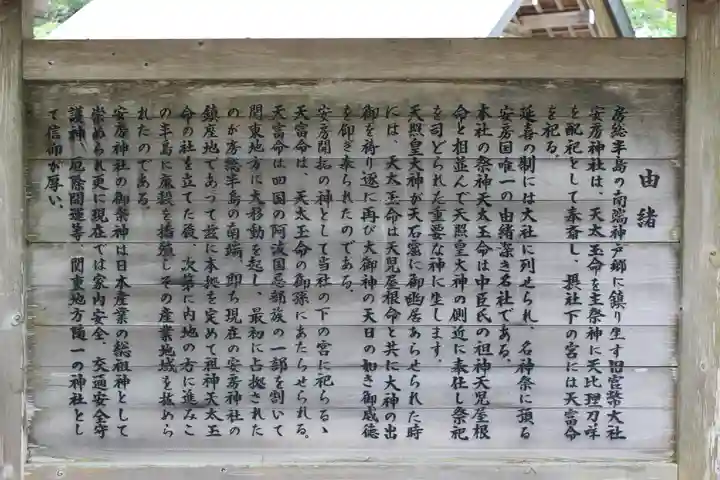 由緒
房総半島の南端神戸郷に鎮り坐す旧官幣大社
安房神社は、天太玉命を主祭神に天比理刀咩
を配祀として奉斎し、摂社下の宮には天富命
を祀る。
延喜の制には大社に列せられ、名神祭に預る
安房国唯一の由緒深き名社である。
本社の祭神天太玉命は中臣氏の祖神天児屋根
命と相並んで天照皇大神の側近に奉仕し祭祀
を司どられた重要な神に坐します。
天照皇大神が天石窟に御幽居あらせられた時
には、天太玉命は天児屋根命と共に大神の出
御を祷り遂に再び大御神の天日の如き御威徳
を仰ぎ奉られたのである。
安房開拓の神として当社の下の宮に祀らるゝ
天富命は、天太玉命の御孫にあたらせられる。
天富命は四国の阿波国忌部族の一部を割いて
関東地方に大移動を起し、最初に占拠された
のが房総半島の南端、即ち現在の安房神社の
鎮座地であって茲に本拠を定めて祖神天太玉
命の社を立てた後、次第に内地の方に進みこ
の半島に麻穀を播殖しその産業地域を拡めら
れたのである。
安房神社の御祭神は日本産業の総祖神として
崇められ更に現在では家内安全、交通安全守
護神、厄除開運等、関東地方随一の神社とし
て信仰が厚い。